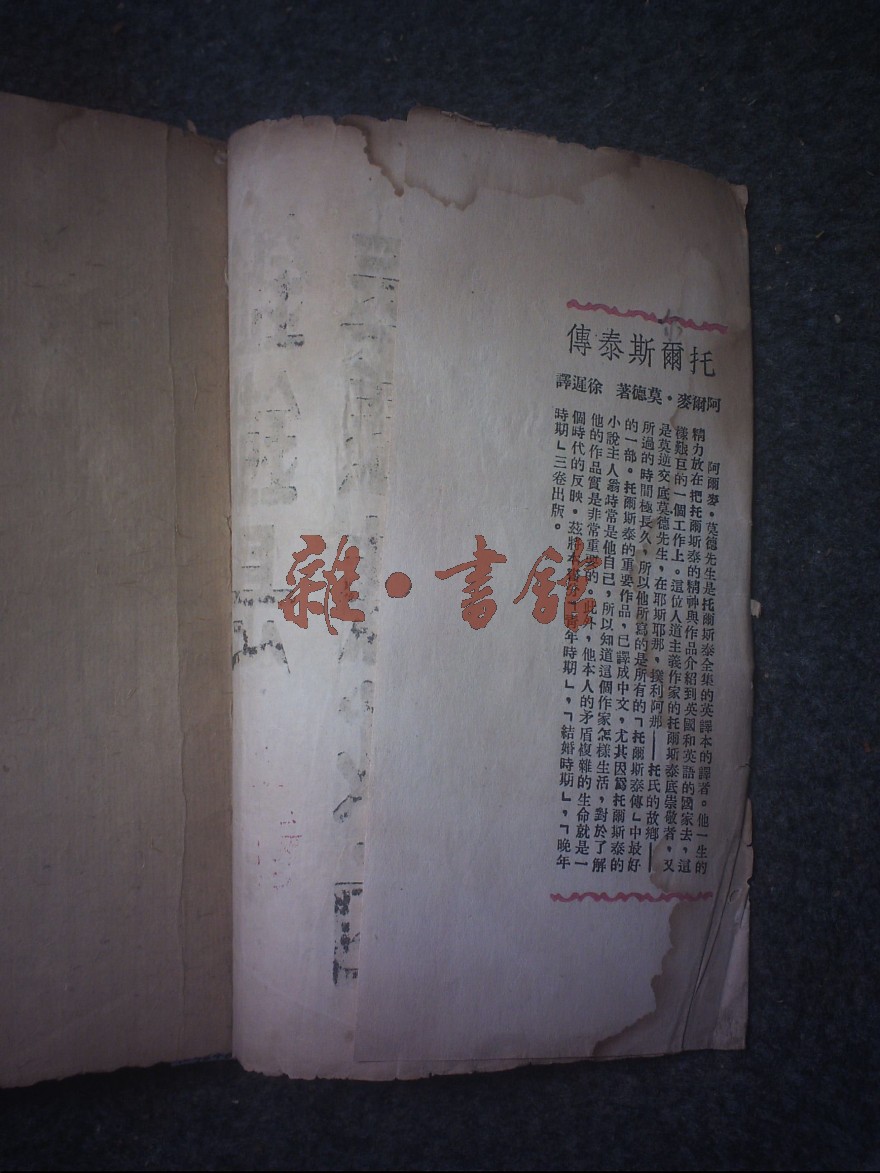 托爾斯泰傳
阿爾麥·莫德著 徐遲譯
阿爾麥·莫德先生是托爾斯泰全集的英譯本的譯者。他一生的
精力放在把托爾斯泰的精神與作品介紹到英國和英語的國家去,這
樣艱巨的一個工作上。這位人道主義作家的托爾斯泰底崇敬者,又
是莫逆交底莫德先生,在耶斯耶那·撲利阿那——托氏的故鄉——
所過的時間極長久,所以他所寫的是所有的「托爾斯泰傳」中最好
的一部。托爾斯泰的重要作品,已譯成中文,尤其因爲托爾斯泰的
小說主人翁時常是他自己,所以知道這個作家怎樣生活,對於了解
他的作品實是非常重要的。此外,他本人的矛盾複雜的生命就是一
個時代的反映。茲將本書分「青年時期」,「結婚時期」,「晚年
時期」三卷出版。
雜·書館